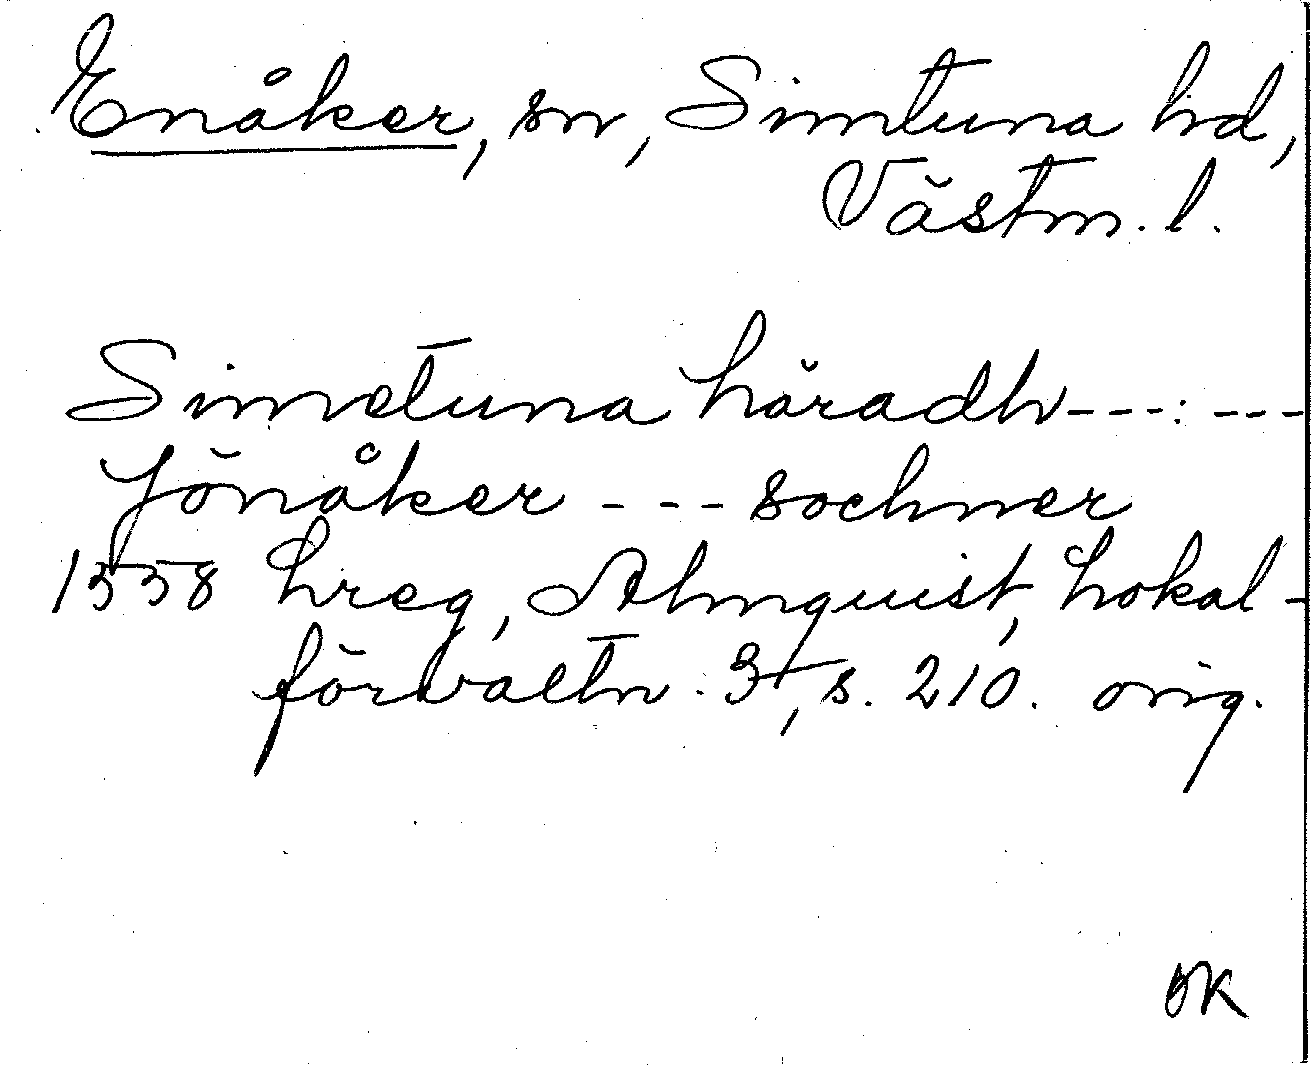 Enåker, sn, Simtuna hd,
Västm. l.
Simetuna häradh---:---
Jönåker --- sochner
1558 hreg, Almquist, Lokal-
förvaltn. 3, s. 210. orig.